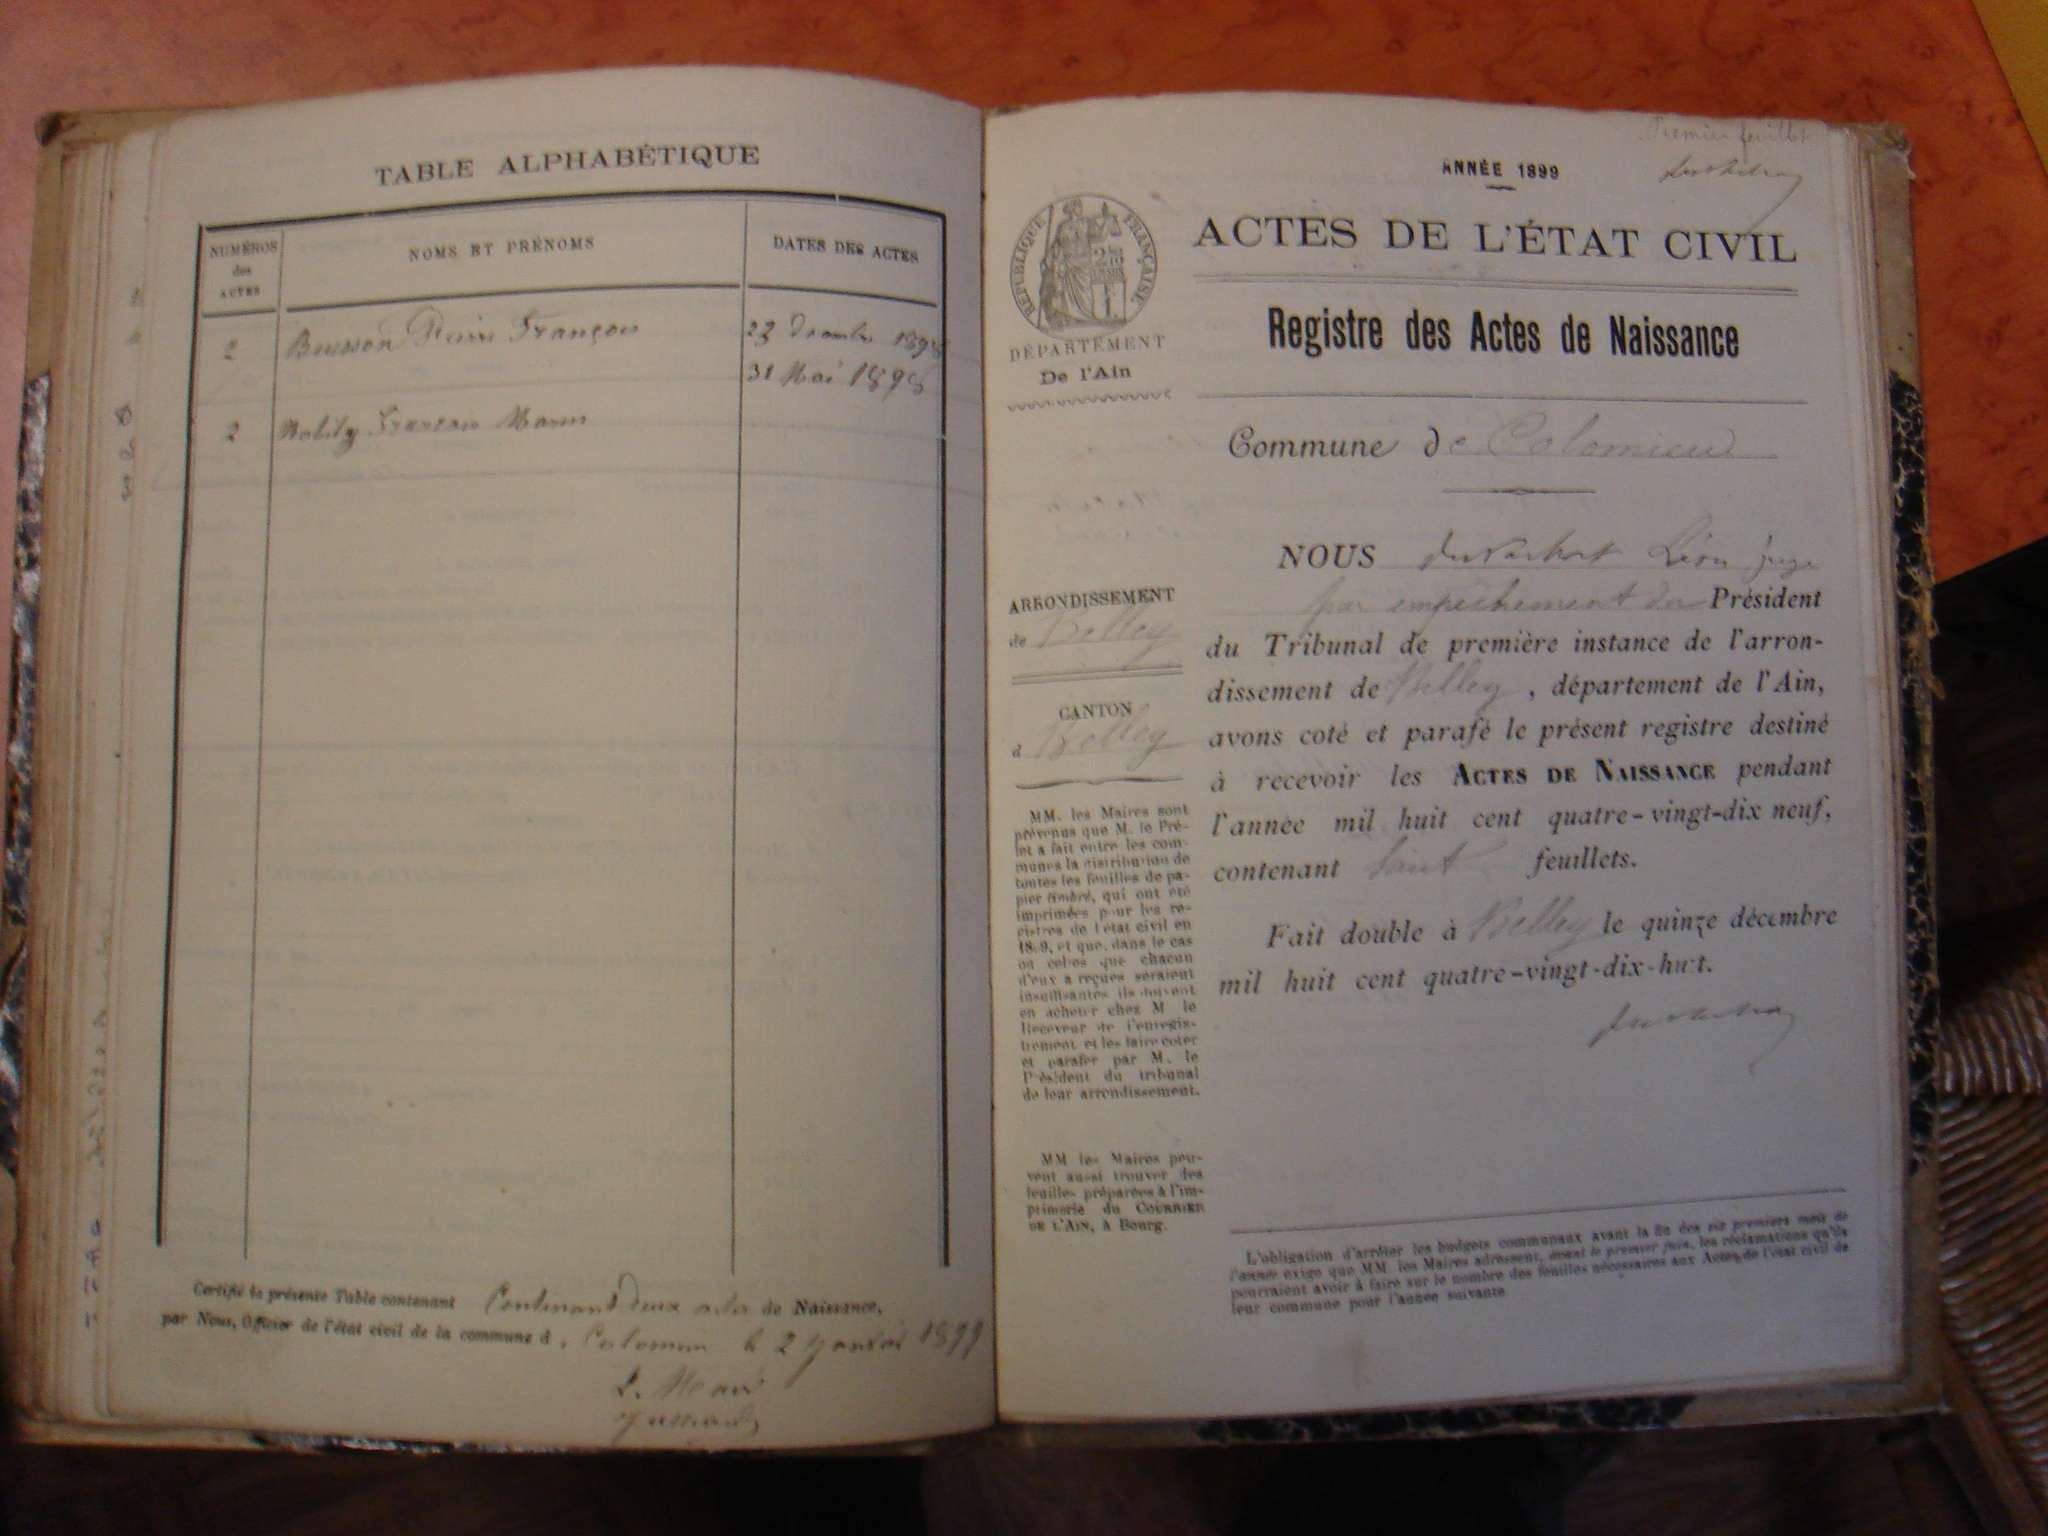 TABLE ALPHABÉTIQUE
NUMÉROS
des
ACTES
NOMS ET PRÉNOMS
DATES DES ACTES
2 François 1898
31 Mai 1898
2 François
Certifié la présente Table contenant Contenant deux actes de Naissance,
par Nous, Officier de l'état civil de la commune d 2 1899
Premier feuillet
ANNÉE 1899
RÉPUBLIQUE FRANÇAISE
DÉPARTEMENT
De l'Ain
ACTES DE L'ÉTAT CIVIL
Registre des Actes de Naissance
Commune de Colomieu
ARRONDISSEMENT
de Belley
CANTON
d Belley
MM. les Maires sont
prévenus que M. le Pré-
fet a fait entre les com-
munes la distribution de
toutes les feuilles de pa-
pier timbré, qui ont été
imprimées pour les re-
gistres de l'état civil en
1899, et que, dans le cas
où celles que chacun
d'eux a reçues seraient
insuffisantes, ils doivent
en acheter chez M. le
Receveur de l'enregis-
trement et les faire coter
et parafer par M. le
Président du tribunal
de leur arrondissement.
MM les Maires peu-
vent aussi trouver des
feuilles préparées à l'im-
primerie du COURRIER
DE L'AIN, à Bourg.
NOUS Léon juge
par empêchement du Président
du Tribunal de première instance de l'arron-
dissement de Belley, département de l'Ain,
avons coté et parafé le présent registre destiné
à recevoir les ACTES DE NAISSANCE pendant
l'année mil huit cent quatre-vingt-dix neuf,
contenant feuillets.
Fait double à Belley le quinze décembre
mil huit cent quatre-vingt-dix-huit.
L'obligation d'arrêter les budgets communaux avant la fin des six premiers mois de
l'année exige que MM. les Maires adressent, avant le premier juin, les réclamations qu'ils
pourraient avoir à faire sur le nombre des feuilles nécessaires aux Actes de l'état civil de
leur commune pour l'année suivante.